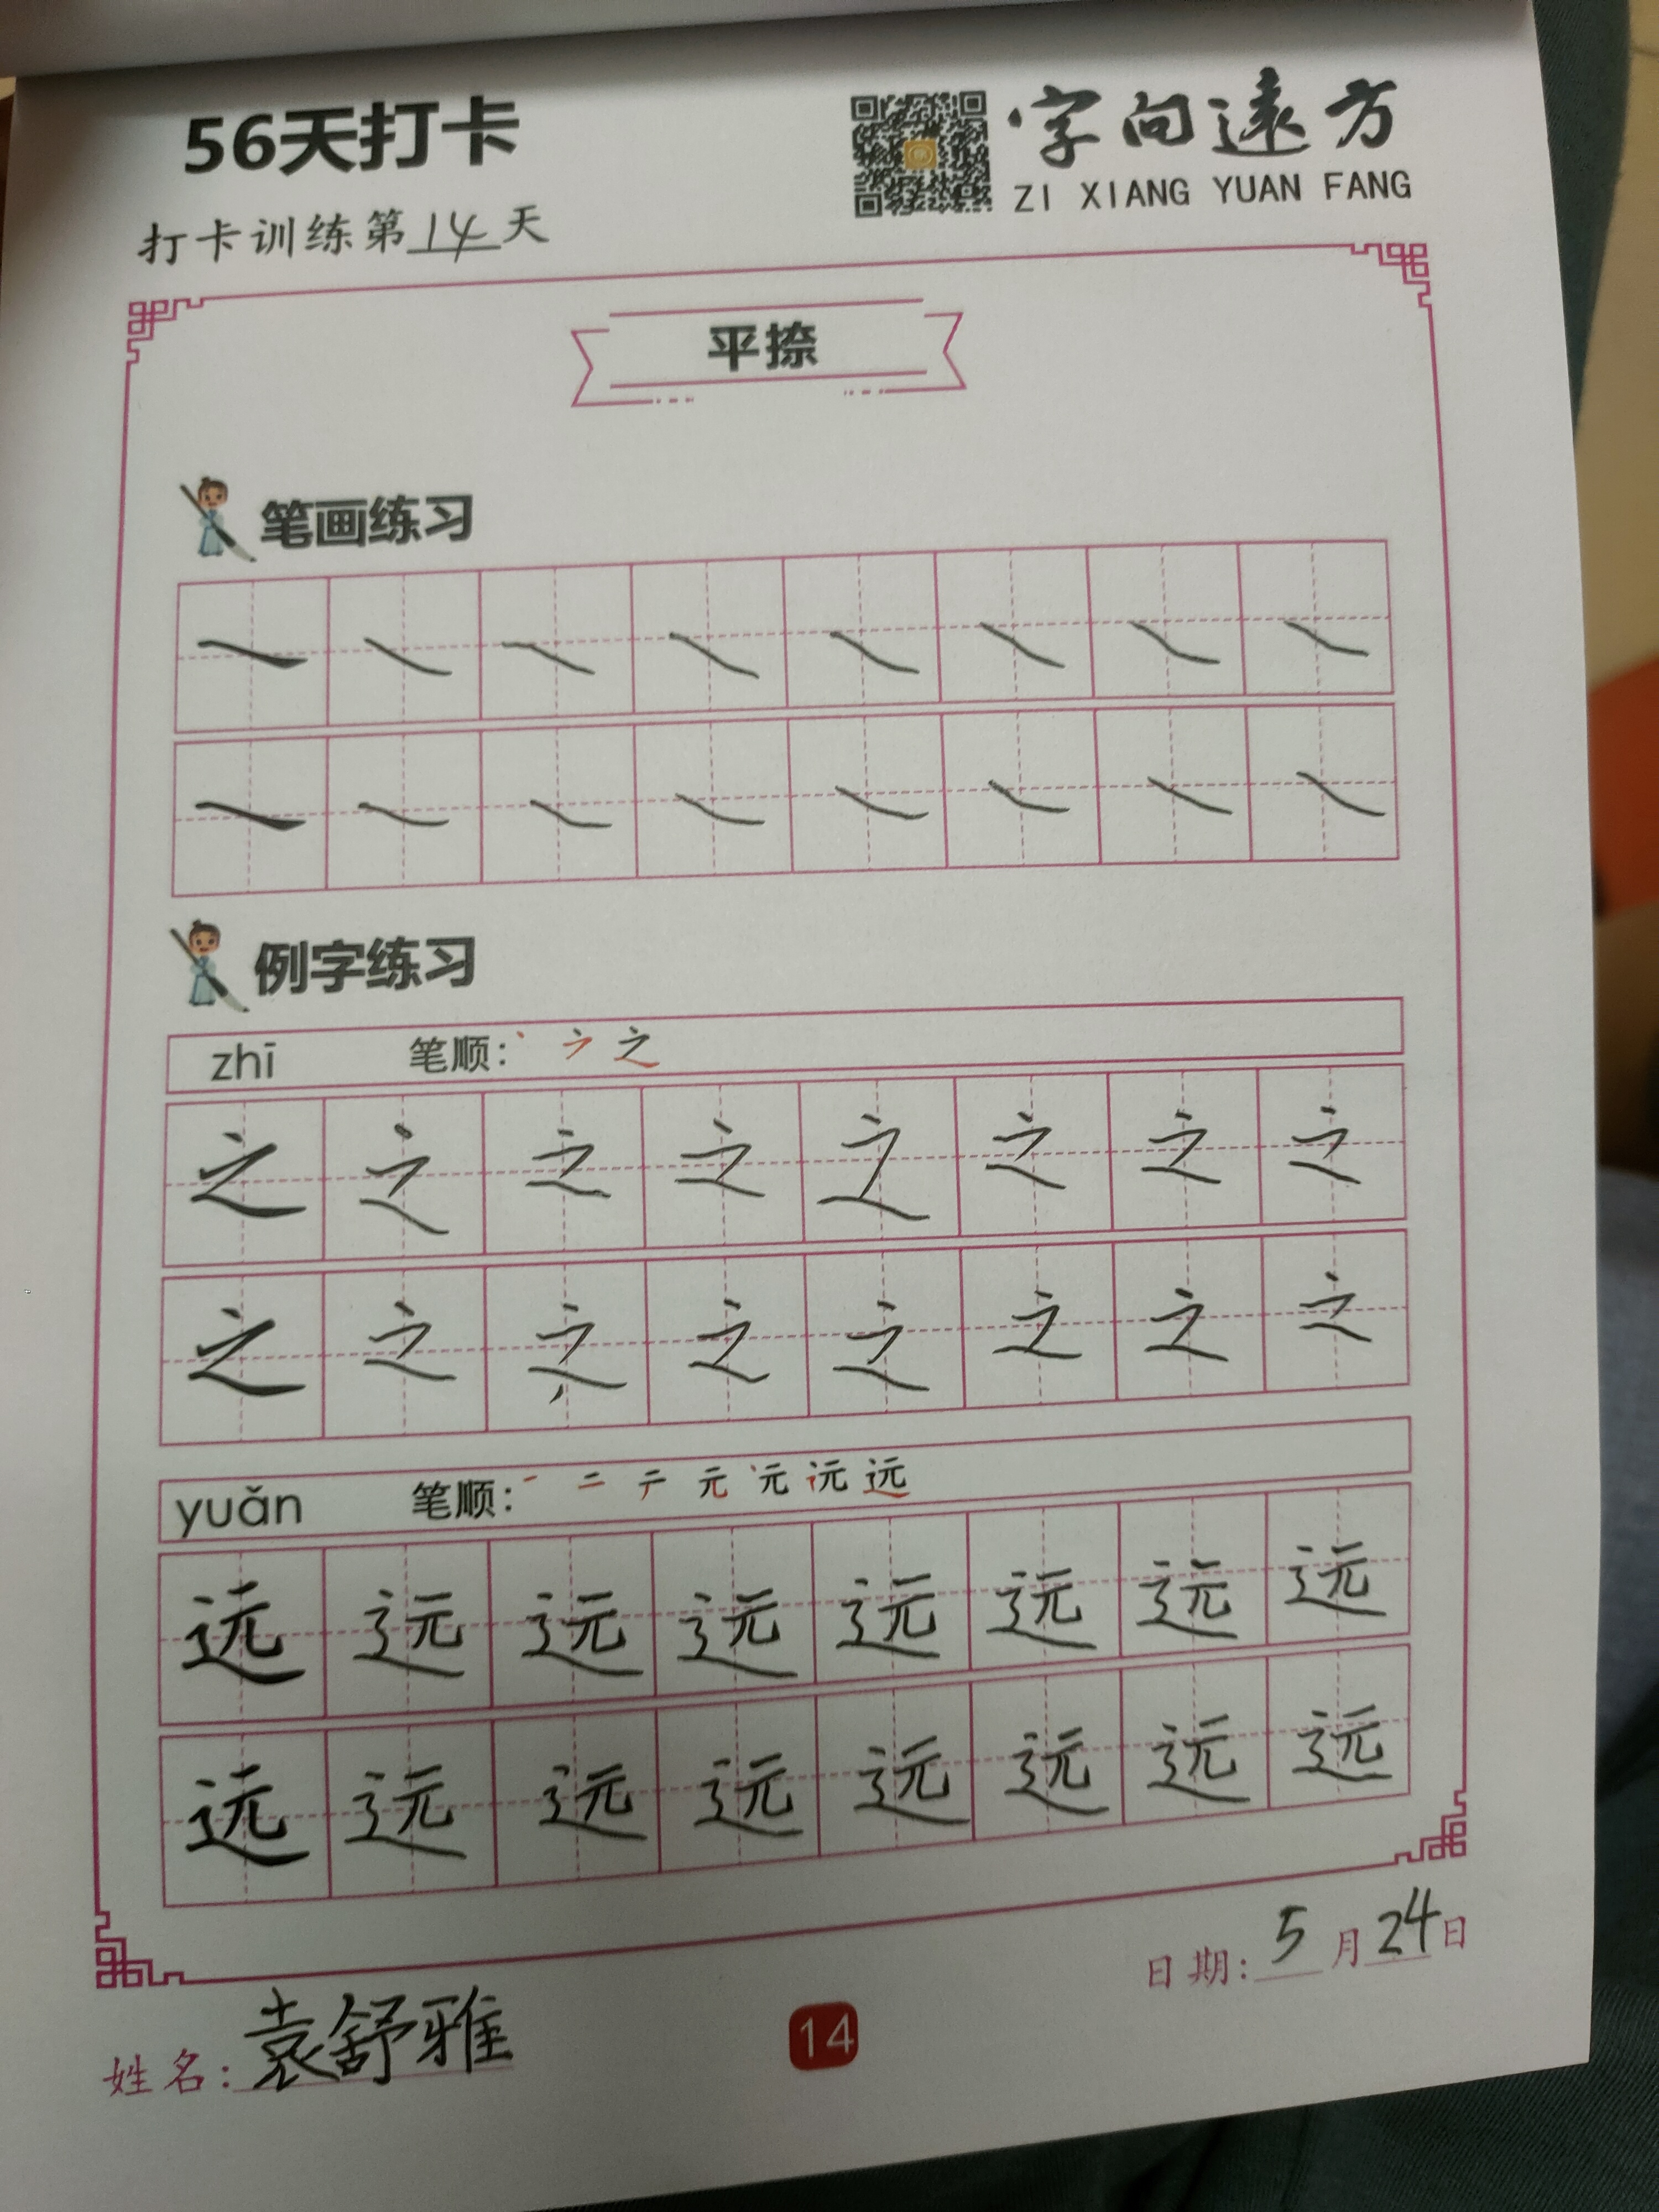 56天打卡
字向遠方
ZI XIANG YUAN FANG
打卡训练第14天
平捺
笔画练习
例字练习
zhī 笔顺: 丶 ㇇ 之
之 之 之 之 之 之 之 之
之 之 之 之 之 之 之 之
yuǎn 笔顺: 一 二 亍 元 远
远 远 远 远 远 远 远 远
远 远 远 远 远 远 远 远
日期: 5 月 24 日
姓名: 袁舒雅
14